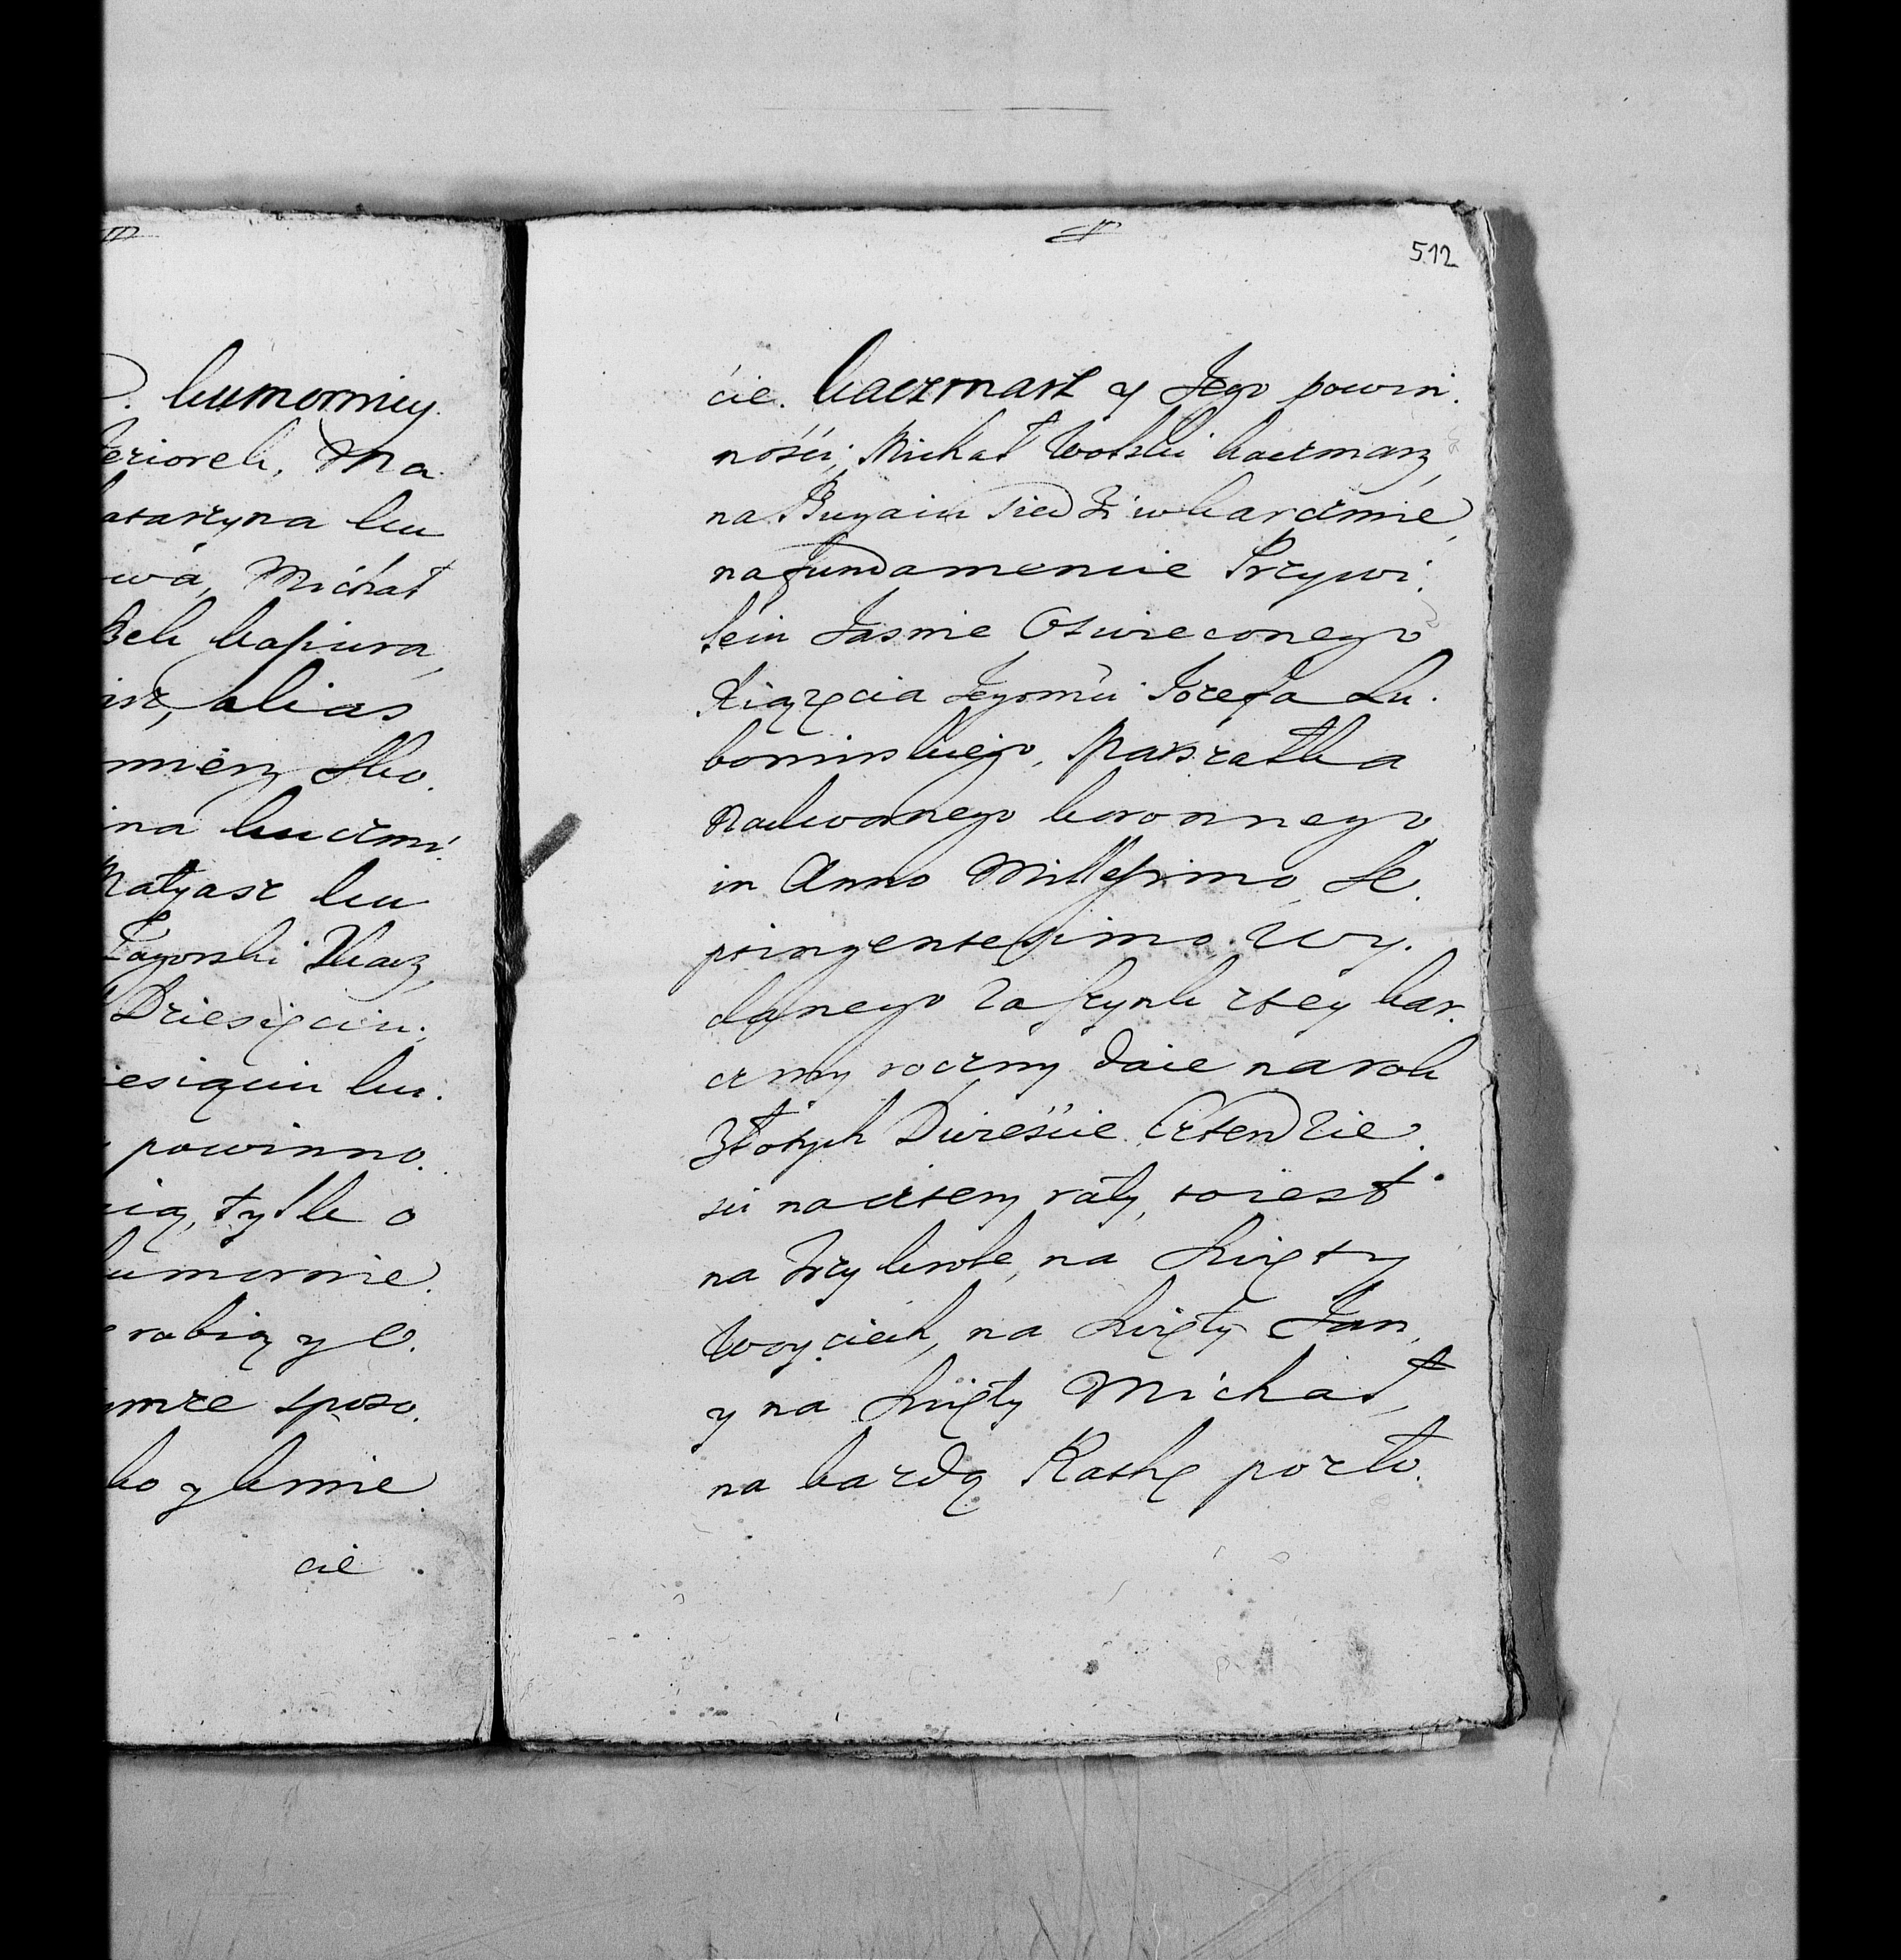 . kumornicy.
Jeziorek, Ma
atarzyna ku
wa, Michał
Bek kapiura,
alias
mierz Sko.
na kuczmi.
Matyasz ku
Zagorski Tkacz,
Dziesięciu;
iesiąciu ku.
powinno.
tylk o
umornie.
robią y o.
mże sposo.
ko y kmie
cie
512
cie. kaczmarz y Jego powin.
ności; Michał Wolski kaczmarz,
na Bugaiu siedzi w karczmie,
na fundamencie Przywi.
leiu Jasnie Oswieconego
Xiążęcia Jegomci Jozefa Lu.
bomirskiego, Marszałka
Nadwornego koronnego
in Anno Millesimo Se.
ptingentesimo. Wy.
danego za szynk ztey kar.
czmy roczny daie na rok
Złotych Dwieście Czterdzie.
sci na cztery raty, toiest
na Trzy krole, na Swięty
Woyciech, na Swięty Jan,
y na Swięty Michał,
na kazdą Ratkę po zło.